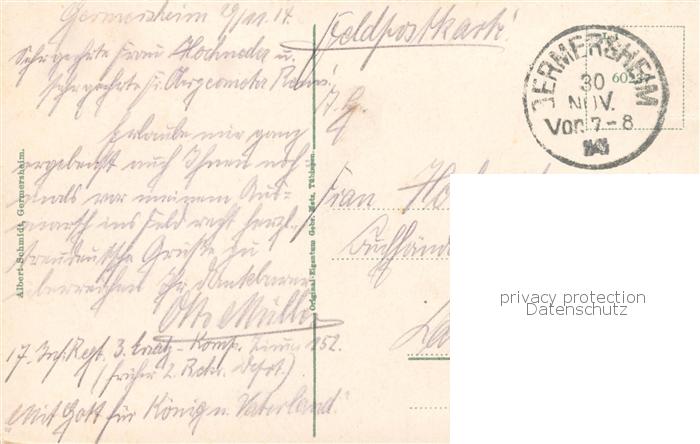 Germersheim 29/11.14.
Sehr geehrte Frau Hochneder u.
sehr geehrte Fr. Obergeometer
Erlaube mir ganz
ergebenst auch Ihnen noch-
mals vor meinem Aus-
marsch ins Feld recht herzl.
treudeutsche Grüße zu
überreichen Ihr dankbarer
Otto Müller
17. Inf. Regt. 3. Ersatz-Komp. 152.
(früher 2. Rekr. Depot.)
„Mit Gott für König u. Vaterland“
Albert Schmidt, Germersheim.
Original-Eigentum Gebr. Metz, Tübingen.
Feldpostkarte!
GERMERSHEIM
30
NOV.
Vor. 7-8
S. H.
Frau
Buchhänd
La
privacy protection
Datenschutz